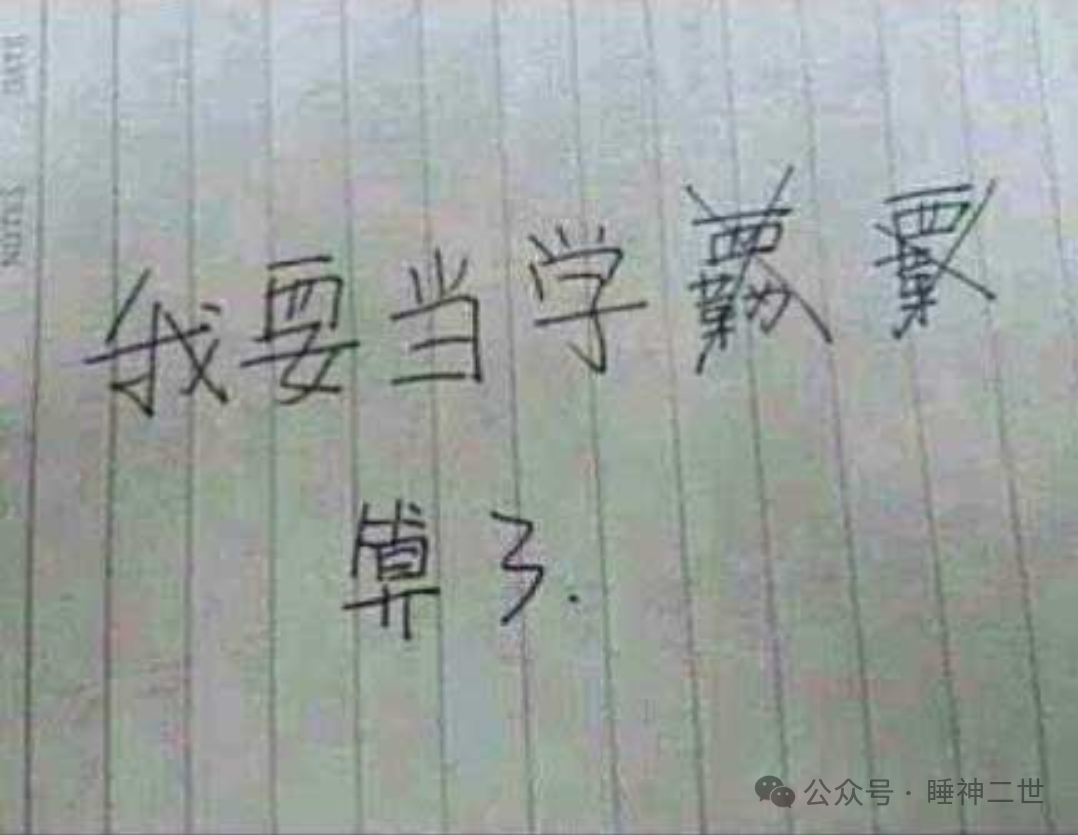 我要当学
算了.
公众号·睡神二世